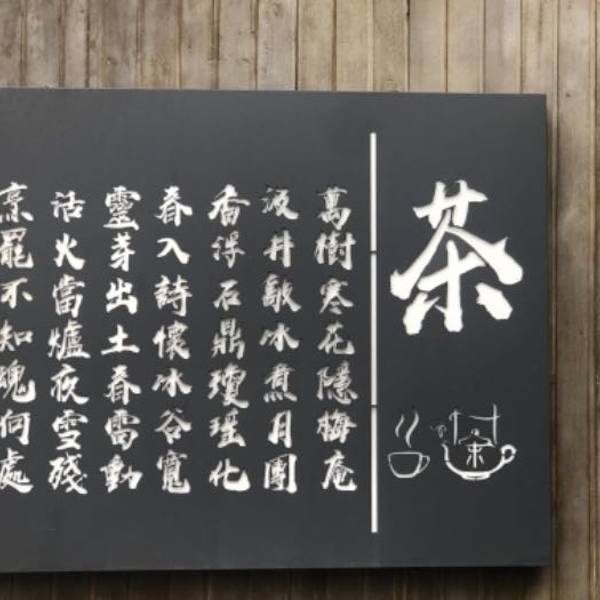 茶
萬樹寒花隱梅庵
汲井敲冰煮月團
香浮石鼎瓊瑤化
春入詩懷冰谷寬
靈芽出土春雷動
活火當爐夜雪殘
烹罷不知魂何處
茶